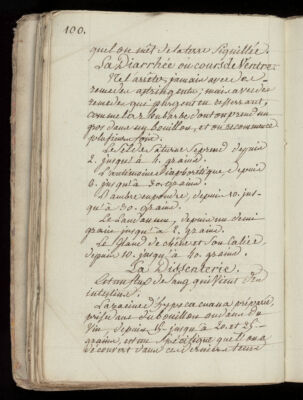 100.
quel on met de la terre Sigillée.
La Diarrhée ou cours de Ventre.
Ne l'arrêtez jamais avec des
remedes astringents; mais avec des
remedes qui purgent en resserrant,
comme la rhubarbe dont on prend un
gros dans un bouillon, et on recommence
plusieurs fois.
Le Sel de Saturne se prend depuis
2. jusqu'à 4. grains.
L'antimoine diaphorétique, depuis
6. jusqu'à 30 grains.
L'ambre en poudre, depuis 10. jus-
qu'à 30. grains.
Le Laudanum, depuis un demi
grain jusqu'à 2. grains.
Le Gland de chêne et son Calice
depuis 10. jusqu'à 40 grains.
La Dissenterie.
C'est un flux de sang qui vient des
intestins.
La racine d'hypecacuana préparée
prise dans du bouillon ou dans du
Vin, depuis 15. jusqu'à 20. et 25.
grains, est un Spécifique que l'on a
découvert dans ces derniers tems